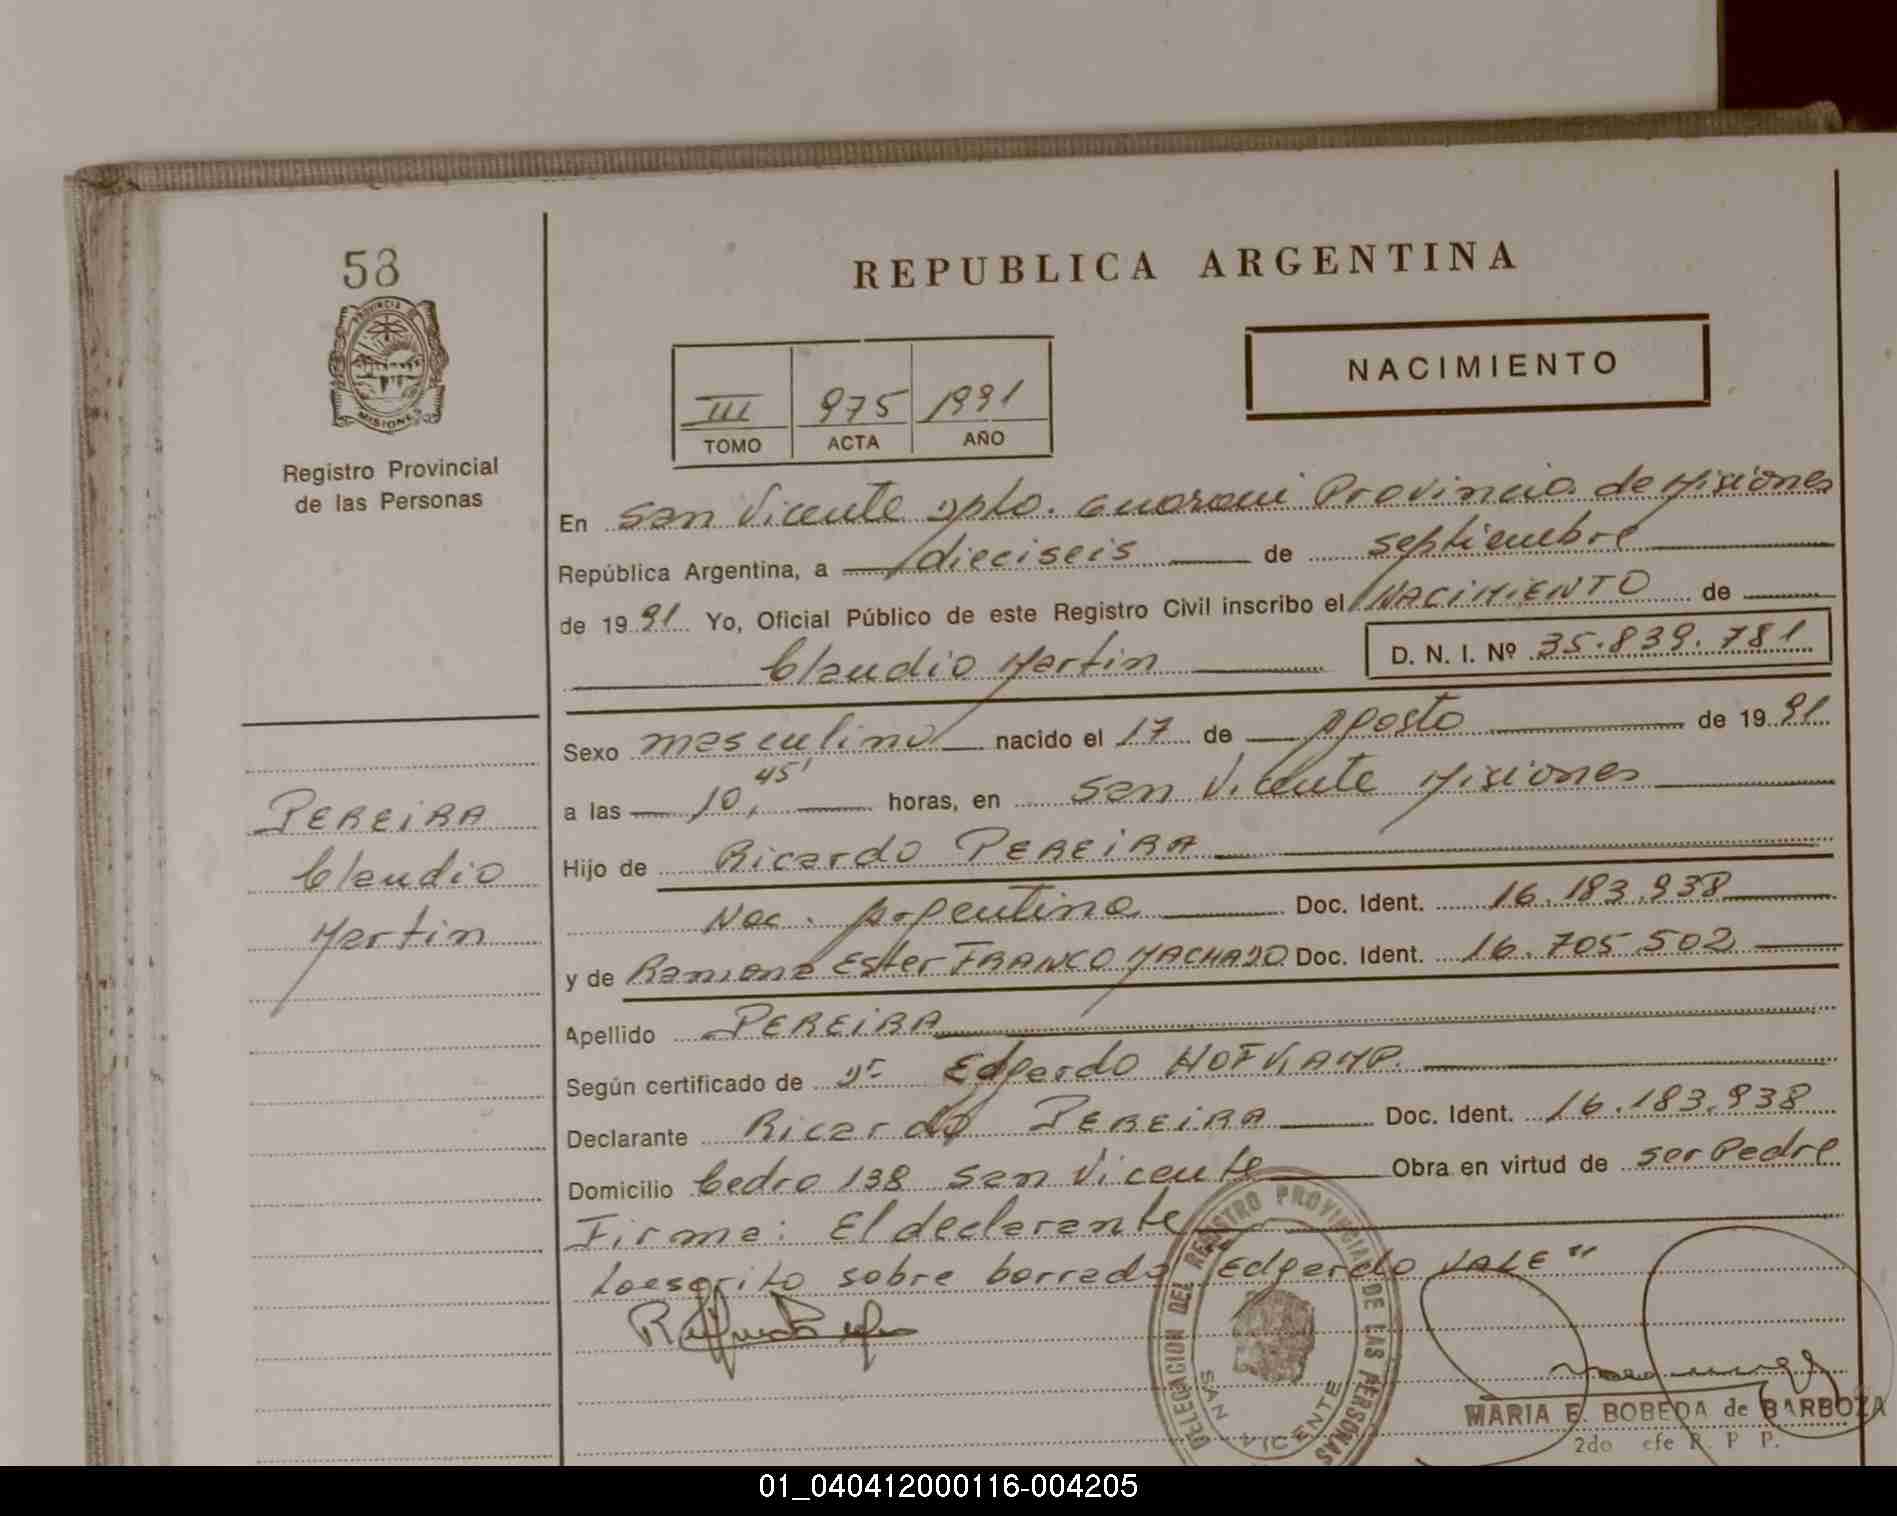 58
PROVINCIA DE
MISIONES
Registro Provincial
de las Personas
REPUBLICA ARGENTINA
NACIMIENTO
III 975 1991
TOMO ACTA AÑO
En San Vicente Dpto. Guarani Provincia de Misiones
República Argentina, a dieciseis de septiembre
de 1991 Yo, Oficial Público de este Registro Civil inscribo el NACIMIENTO de
Claudio Martin D. N. I. Nº 35.839.781
Sexo masculino nacido el 17 de Agosto de 1991
a las 10,45' horas, en San Vicente Misiones
Hijo de Ricardo PEREIRA
Nac. Argentina Doc. Ident. 16.183.938
y de Ramona Ester FRANCO MACHADO Doc. Ident. 16.705.502
Apellido PEREIRA
Según certificado de Dr Edgardo HOFKAMP.
Declarante Ricardo PEREIRA Doc. Ident. 16.183.938
Domicilio Cedro 138 San Vicente Obra en virtud de ser Padre
Firma: El declarante
Loescrito sobre borrado "Edgardo VALE"
PEREIRA
Claudio
Martin
DELEGACION DEL REGISTRO PROVINCIAL DE LAS PERSONAS
SAN VICENTE
MARIA E. BOBEDA de BARBOZA
2do efe R. P. P.
01_040412000116-004205